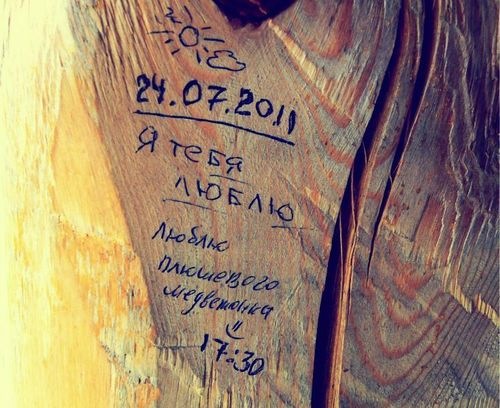 24.07.2011
Я тебя
люблю
Люблю
плюшевого
медвежонка
17:30